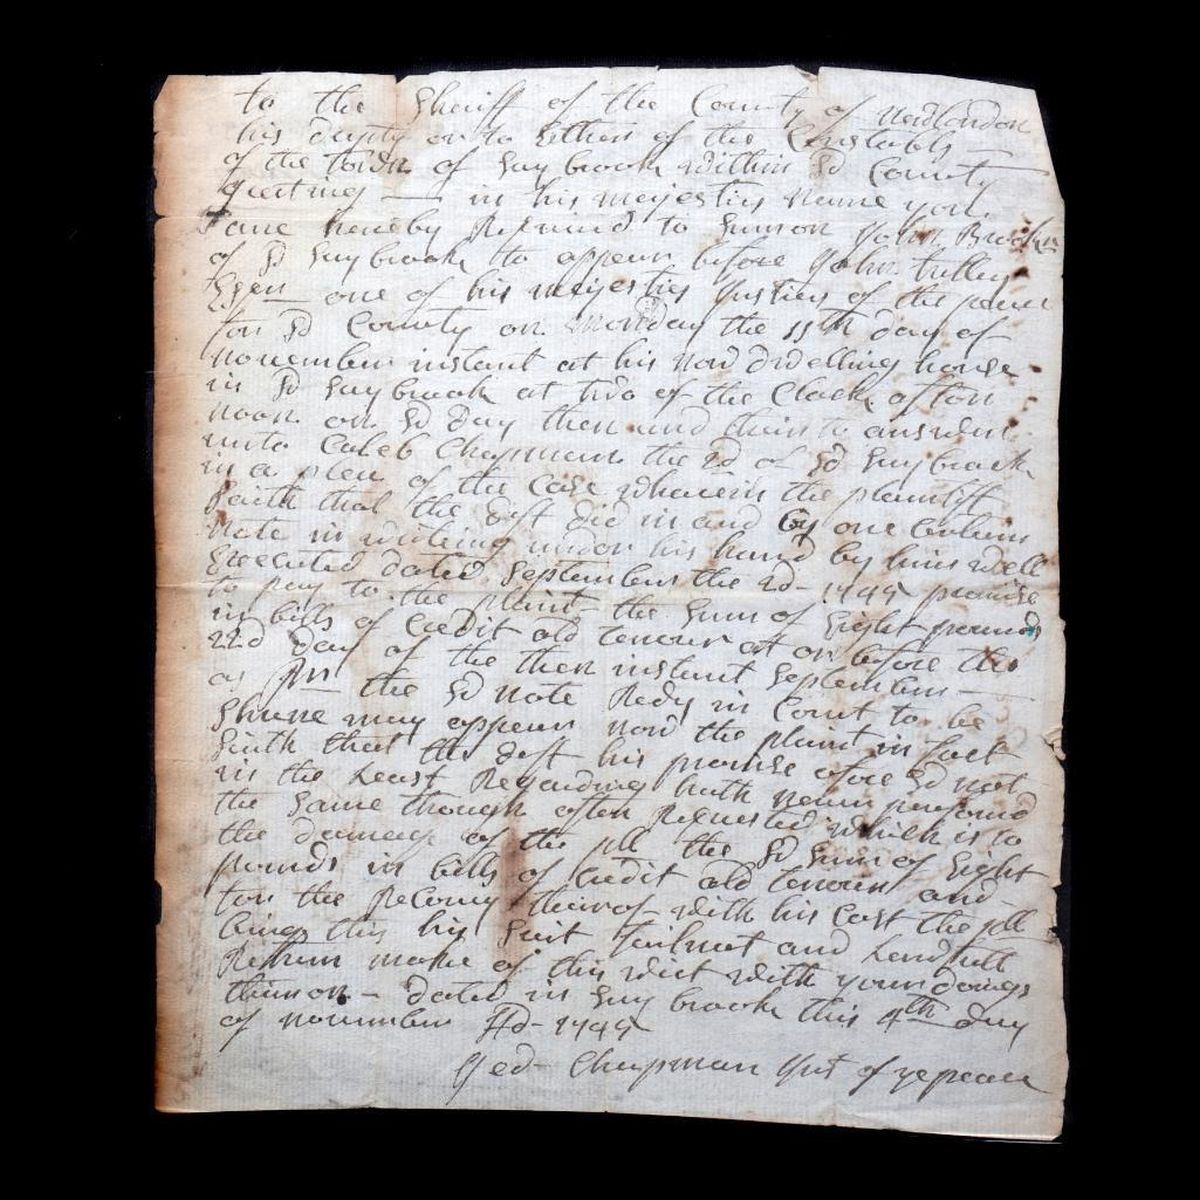 to the Sheriff of the County of Newlondon
his deputy or to Either of the Constabls
of the town of Saybrook within sd County
Greeting — in his majesties Name you
are hereby Required to Sumon John Brooke
of sd Saybrook to appear before John tulley
Esqer one of his majesties Justies of the peace
for sd County on Monday the 11th day of
november instant at his now dwelling house
in sd Saybrook at two of the Clock after
noon on sd day then and their to answer
unto Caleb Chapman the 2d of sd Saybrook
in a plea of the Case wherein the plantiff
Saith that the deft did in and by one certain
Note in writing under his hand by him well
Executed dated September the 2d - 1745 promise
to pay to the plaint the Sum of Eight pounds
in bills of Credit old tenour at or before the
22d day of the then instant September —
as pr the sd note Redy in Court to be
Shune may appear now the plaint in fact
Saith that the deft his promise afore sd not
in the Least Regarding hath never performd
the Same though often Requested which is to
the damage of the pll the sd Sum of Eight
pounds in bills of Credit old tenour and
for the Recovry theirof with his Cost the pll
brings this his Suit fail not and
Return make of this writ with your doings
theiron - dated in Saybrook this 4th day
of november AD - 1745
Jed - Chapman Just of ye peace